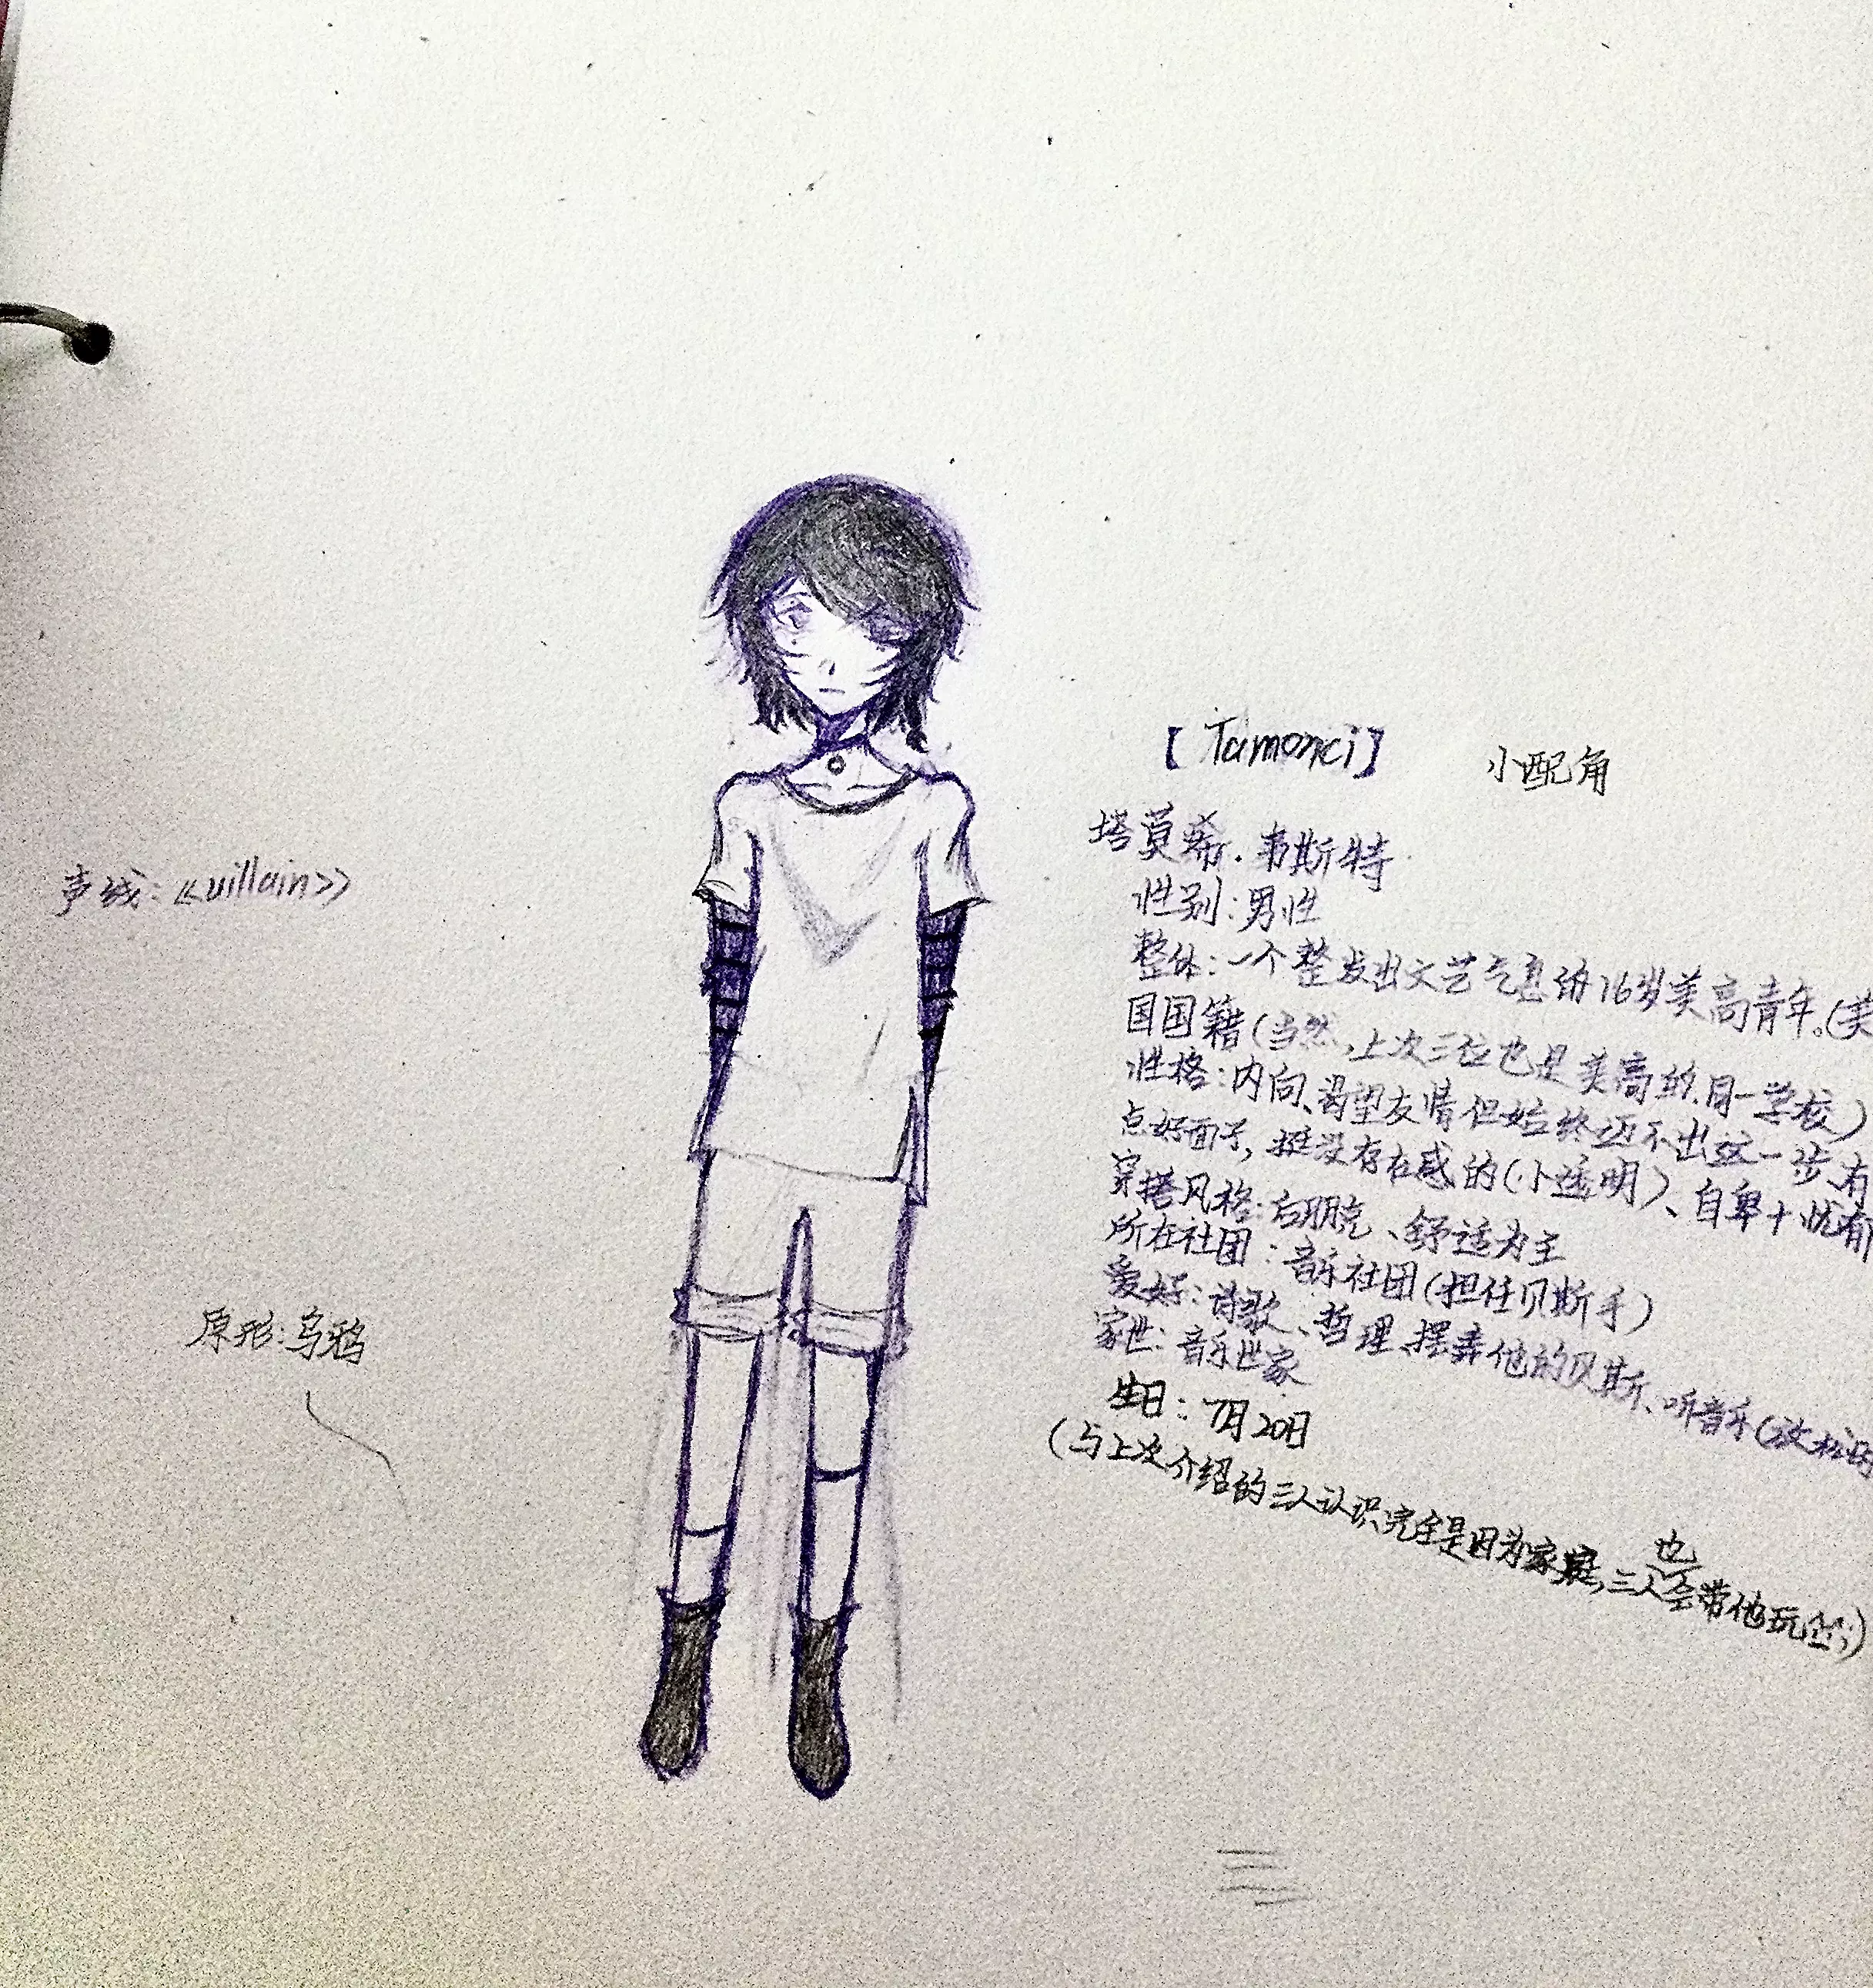 【Tamonci】 小配角
塔莫希·韦斯特
性别：男性
整体：一个整发出文艺气息的16岁美高青年。(美
国国籍(当然，上次三位也是美高的，同一学校)
性格：内向、渴望友情但始终迈不出这一步、有
点好面子，挺没存在感的(小透明)、自卑+忧郁
穿搭风格：后朋克、舒适为主
所在社团：音乐社团(担任贝斯手)
爱好：诗歌、哲理、摆弄他的贝斯、听音乐(放松
家世：音乐世家
生日：7月20日
(与上次介绍的三人认识完全是因为家庭，三人也会带他玩
声线：《villain》
原形：乌鸦